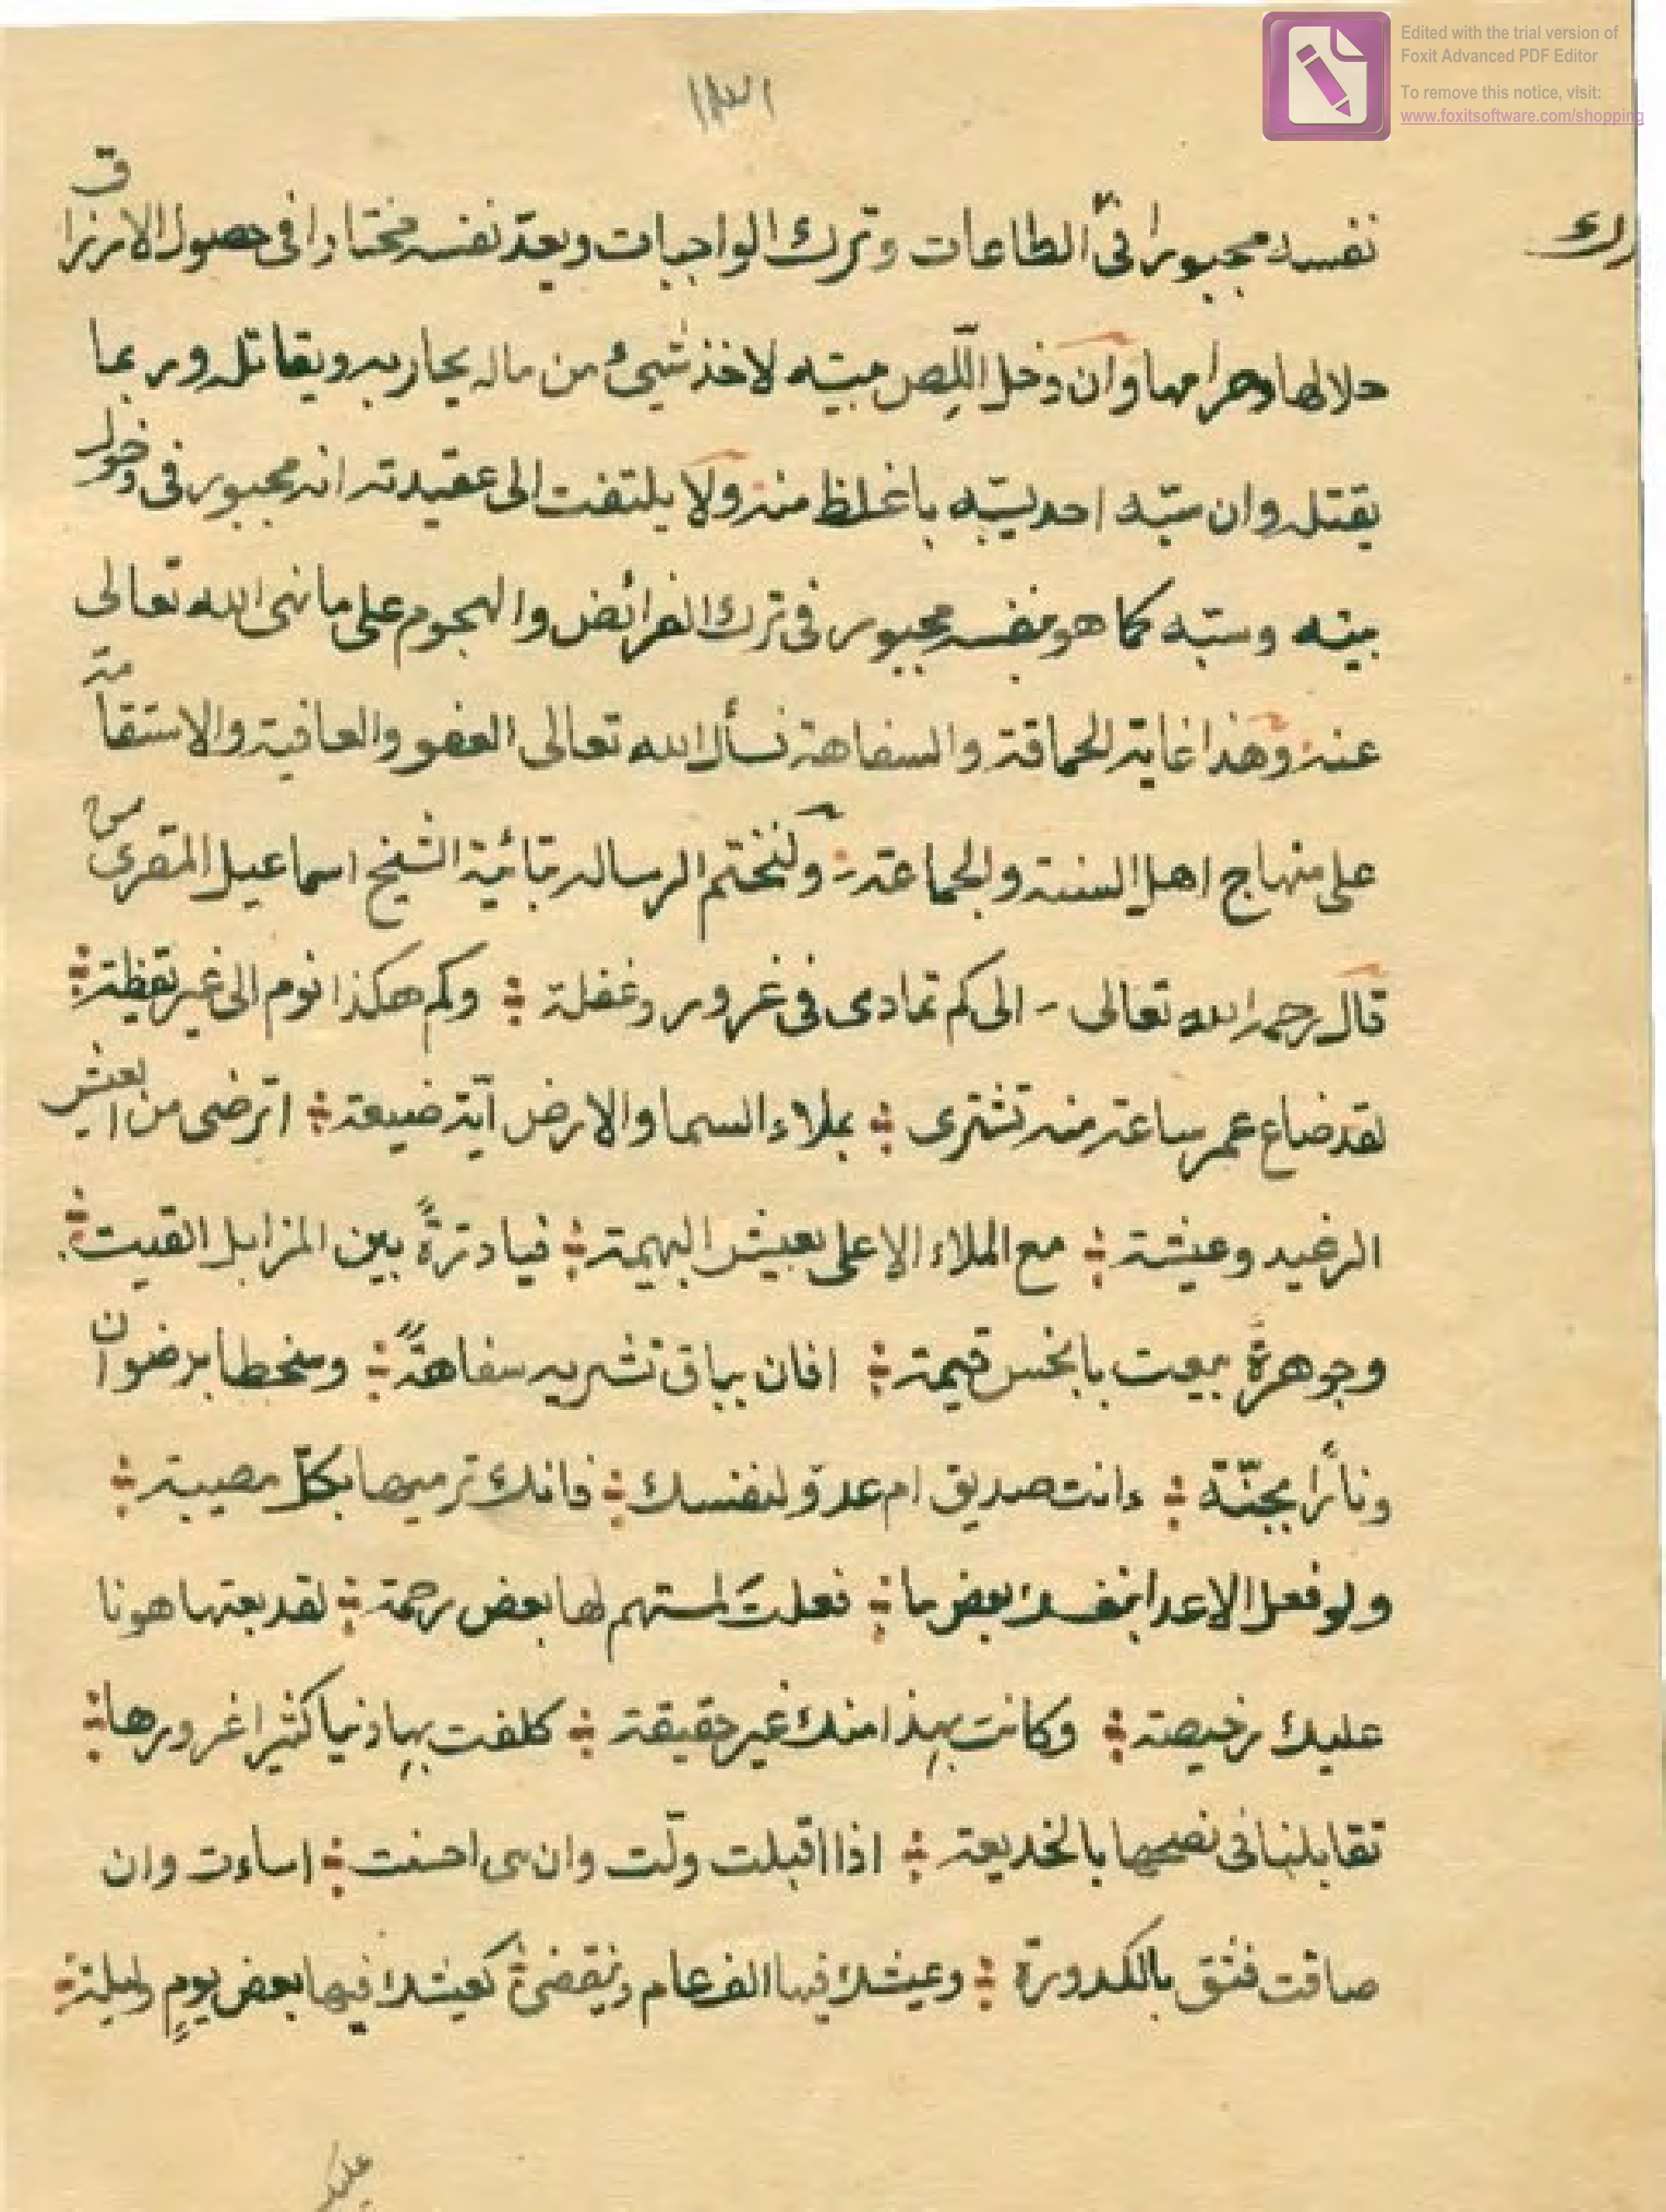 Edited with the trial version of
Foxit Advanced PDF Editor
To remove this notice, visit:
www.foxitsoftware.com/shopping
نفسه مجبورا فى الطاعات وترك الواجبات ويعدّ نفسه مختارا فى حصول الارزاق
حلالها وحرامها وان دخل اللّص بيته لاخذ شيئ من ماله يحاربه ويقاتله وربما
يقتله وان سبّه احد يسبّه باغلظ منه ولا يلتفت الى عقيدته انه مجبور فى دخول
بيته وسبّه كما هو نفسه مجبور فى ترك الفرائض والهجوم على ما نهى الله تعالى
عنه وهذا غاية الحماقة والسفاهة نسأل الله تعالى العفو والعافية والاستقامة
على منهاج اهل السنة والجماعة ولنختم الرسالة بتائية الشيخ اسماعيل المقرى
قال رحمه الله تعالى - الى كم تمادى فى غرور وغفلة ÷ وكم هكذا نوم الى غير يقظة ÷
لقد ضاع عمر ساعة منه تشترى ÷ بملاء السما والارض آيّة ضيعة ÷ اترضى من العيش
الرغيد وعيشة ÷ مع الملاء الاعلى بعيش البهيمة ÷ فيا درّةً بين المزابل القيت ÷
وجوهرةً بيعت بابخس قيمة ÷ افان بباق تشريه سفاهةً ÷ وسخطا برضوان
ونارًا بجنّة ÷ ءانت صديق ام عدوّ لنفسك ÷ فانك ترميها بكلّ مصيبة ÷
ولو فعل الاعدا بنفسك بعض ما ÷ فعلتَ لمستهم لها بعض رحمة ÷ لقد بعتها هونا
عليك رخيصة ÷ وكانت بهذا منك غير حقيقة ÷ كلفت بها دنيا كثيرا غرورها ÷
تقابلنا فى نصحها بالخديعة ÷ اذا اقبلت ولّت وان هى احسنت ÷ اساءت وان
صافت فثق بالكدورة ÷ وعيشك فيها الف عام وينقضى كعيشك فيها بعض يومٍ وليلة ÷
عليك